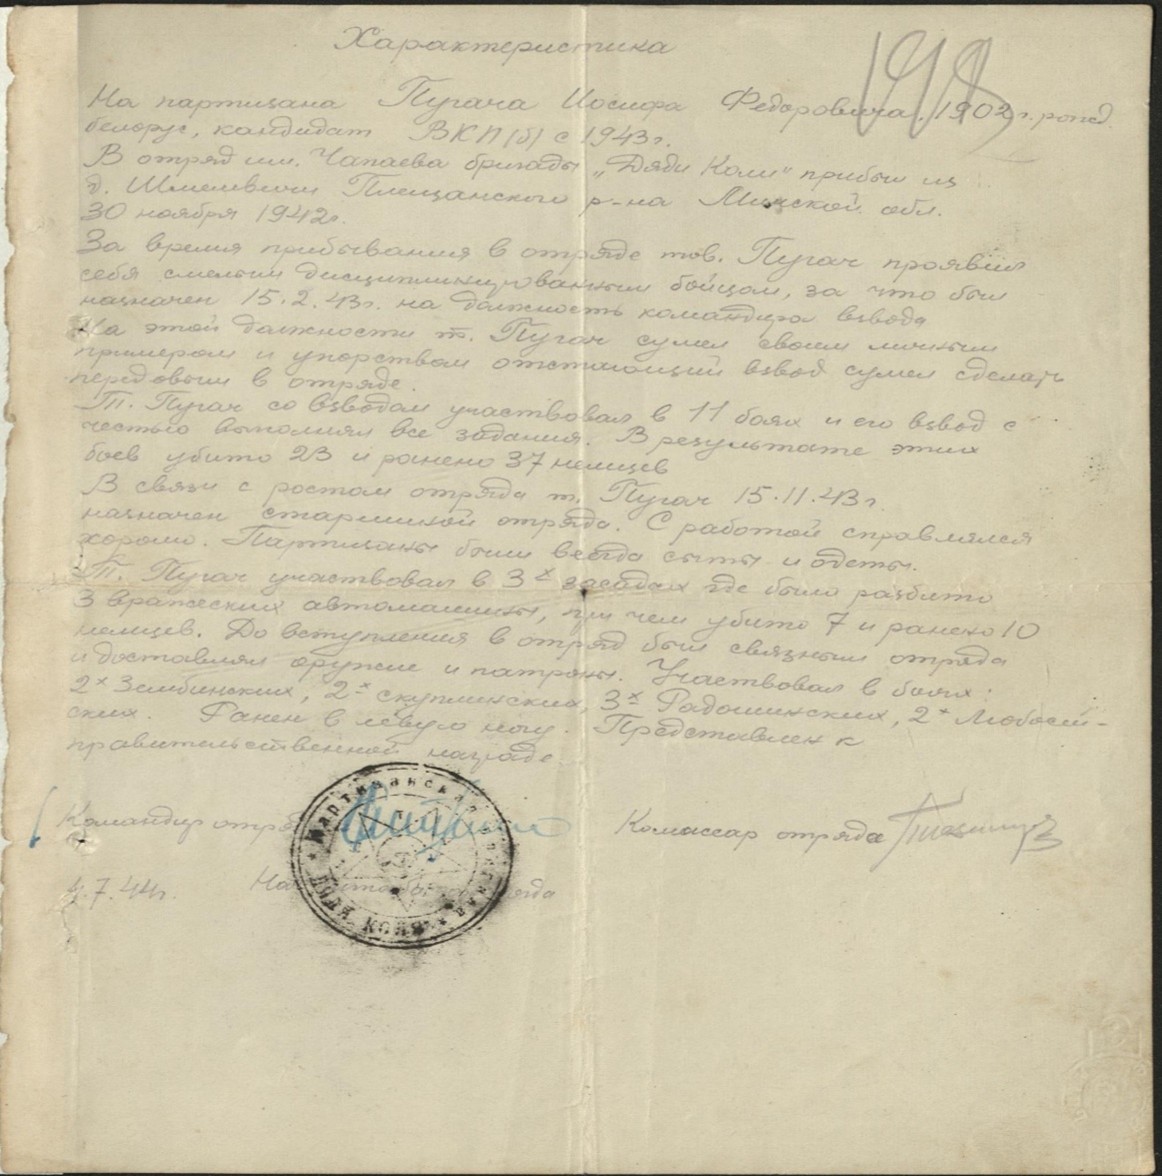 Характеристика
На партизана Пугача Иосифа Федоровича. 1902 г. рожд.
белорус, кандидат ВКП(б) с 1943г.
В отряд им. Чапаева бригады „Дяди Коли" прибыл из
д. Шипевичи Плещанского р-на Минской обл.
30 ноября 1942г.
За время прибывания в отряде тов. Пугач проявил
себя смелым дисциплинированным бойцом, за что был
назначен 15.2.43г. на должность командира взвода
На этой должности т. Пугач сумел своим личным
примером и упорством отстающий взвод сумел сделать
передовым в отряде.
Т. Пугач со взводом участвовал в 11 боях и его взвод с
честью выполнял все задания. В результате этих
боев убито 23 и ранено 37 немцев
В связи с ростом отряда т. Пугач 15.11.43г.
назначен старшиной отряда. С работой справлялся
хорошо. Партизаны были всегда сыты и одеты.
Т. Пугач участвовал в 3х засадах где было разбито
3 вражеских автомашины, при чем убито 7 и ранено 10
немцев. До вступления в отряд был связным отряда
и доставлял оружие и патроны. Участвовал в боях:
2х Зембинских, 2х скуплинских, 3х Радошинских, 2х Любост-
ских. Ранен в левую ногу. Представлен к
правительственной награде
Командир отря
Комассар отряда
4.7.44г. На
Партизанская
Дяди Коли